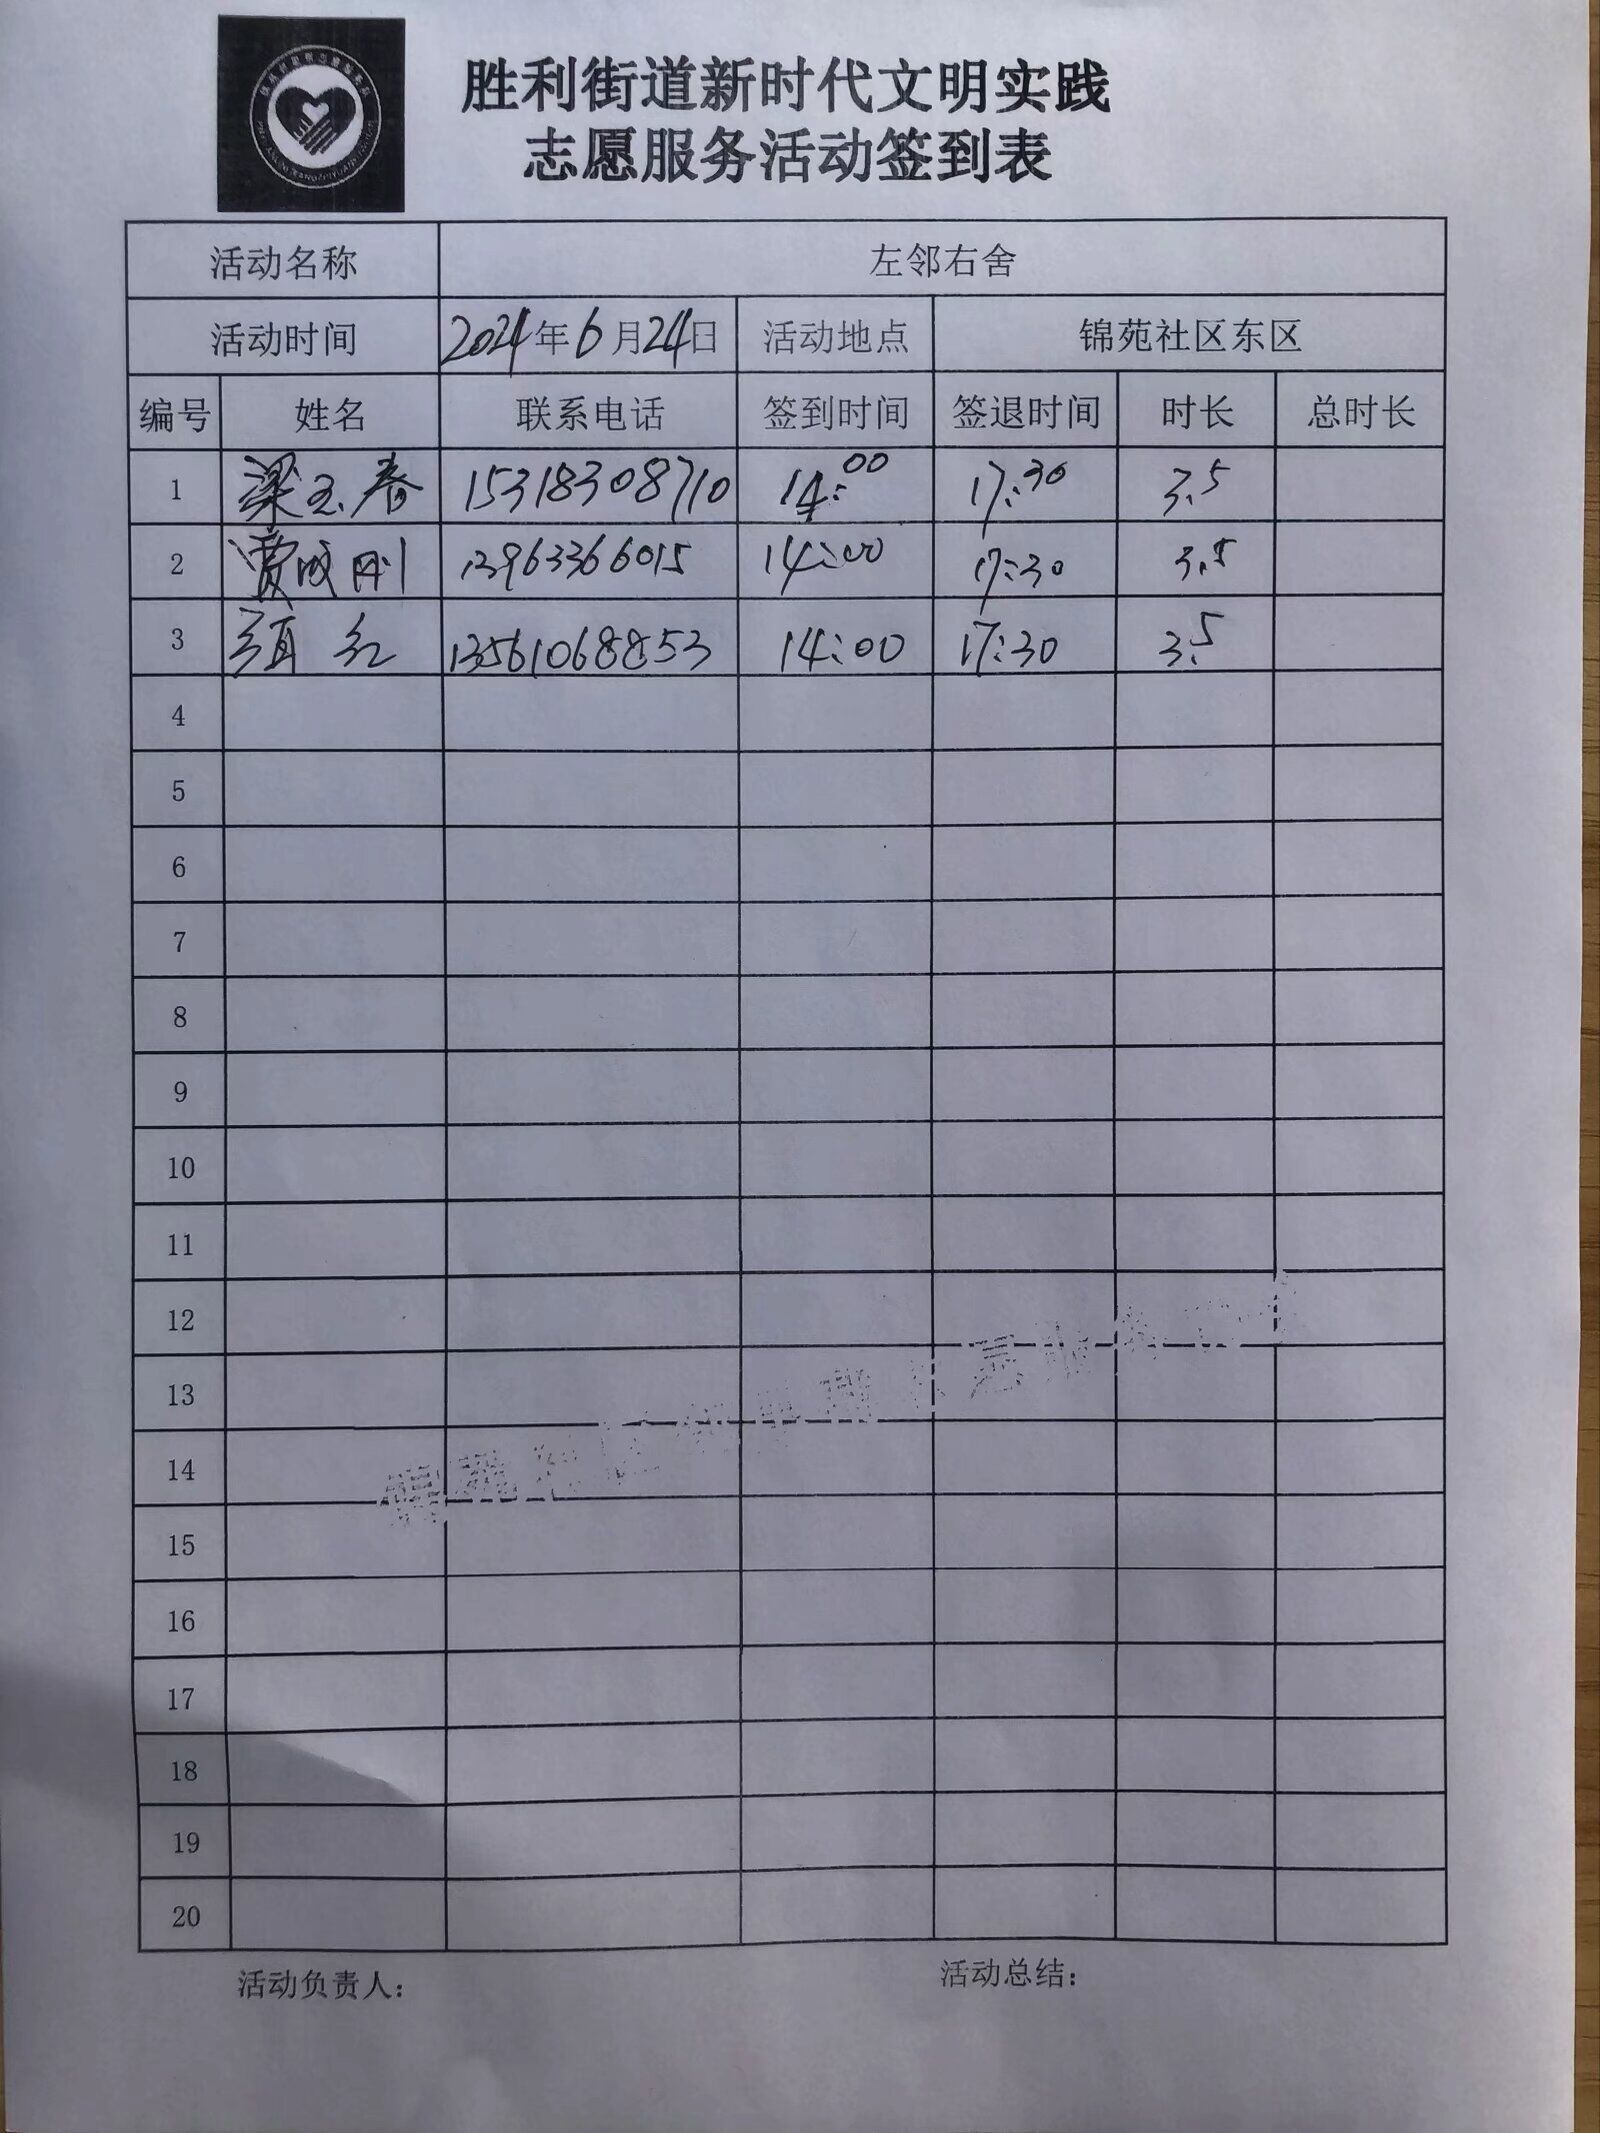 胜利街道新时代文明实践
志愿服务活动签到表
活动名称 左邻右舍
活动时间 2024年6月24日 活动地点 锦苑社区东区
编号 姓名 联系电话 签到时间 签退时间 时长 总时长
1 梁玉春 15318308710 14:00 17:30 3.5
2 贾成刚 13963366015 14:00 17:30 3.5
3 红 13561068853 14:00 17:30 3.5
4
5
6
7
8
9
10
11
12
13
14
15
16
17
18
19
20
活动负责人： 活动总结：